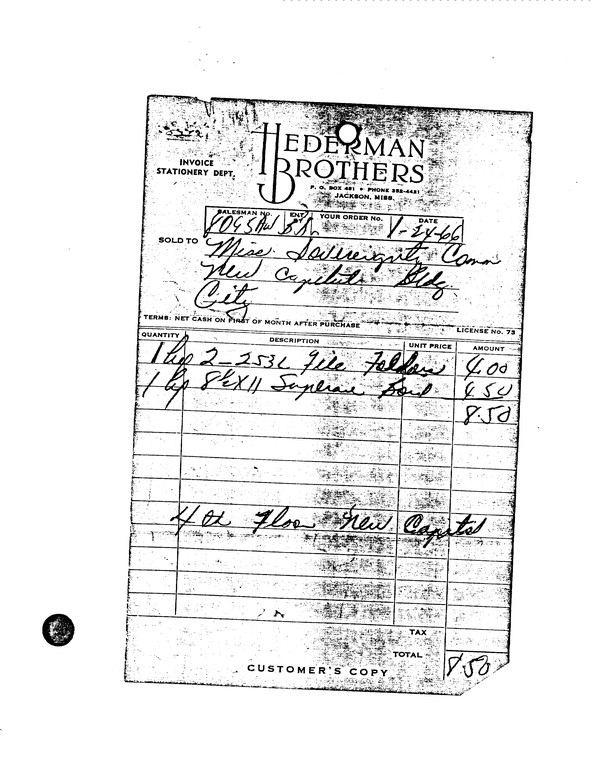 HEDERMAN
BROTHERS
INVOICE
STATIONERY DEPT.
P. O. BOX 491 • PHONE 352-4431
JACKSON, MISS.
SALESMAN NO. ENT BY YOUR ORDER NO. DATE
1-24-66
SOLD TO Miss. Sovereignty Comm
New Capitol Bldg.
City
TERMS: NET CASH ON FIRST OF MONTH AFTER PURCHASE
LICENSE NO. 73
QUANTITY DESCRIPTION UNIT PRICE AMOUNT
1 2-253L File Folders 4.00
1 8½x11 Bond 4.50
8.50
4th Floor New Capitol
TAX
TOTAL 8.50
CUSTOMER'S COPY